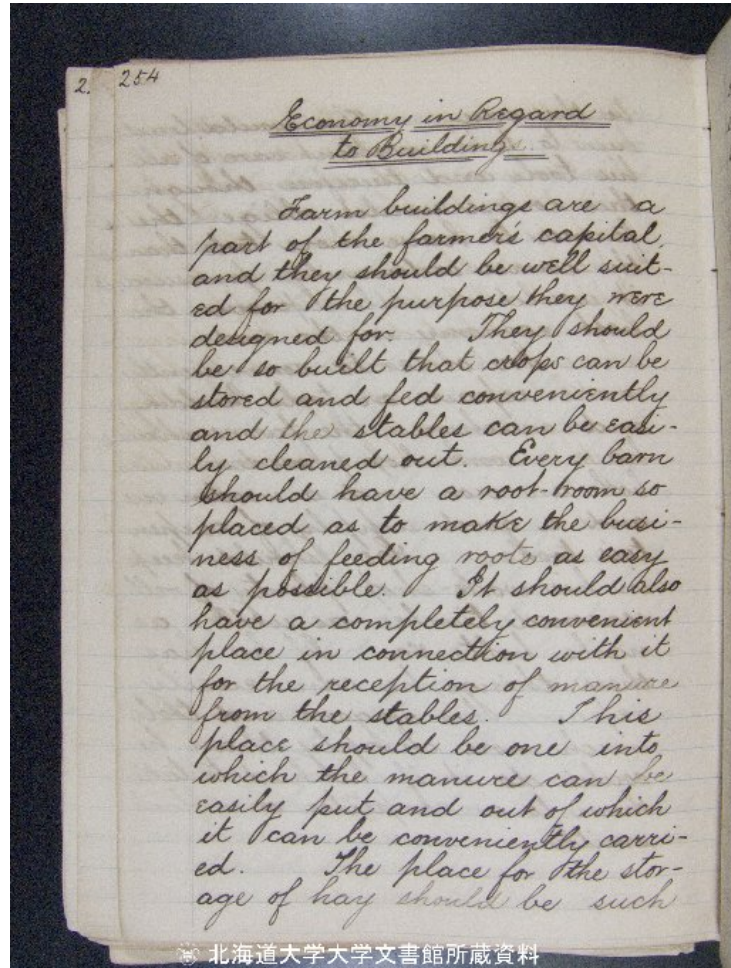 2.
254
Economy in Regard
to Buildings.
Farm buildings are a
part of the farmer's capital,
and they should be well suit-
ed for the purpose they were
designed for. They should
be so built that crops can be
stored and fed conveniently
and the stables can be easi-
ly cleaned out. Every barn
should have a root-room so
placed as to make the busi-
ness of feeding roots as easy
as possible. It should also
have a completely convenient
place in connection with it
for the reception of manure
from the stables. This
place should be one into
which the manure can be
easily put and out of which
it can be conveniently carri-
ed. The place for the stor-
age of hay should be such
北海道大学大学文書館所蔵資料